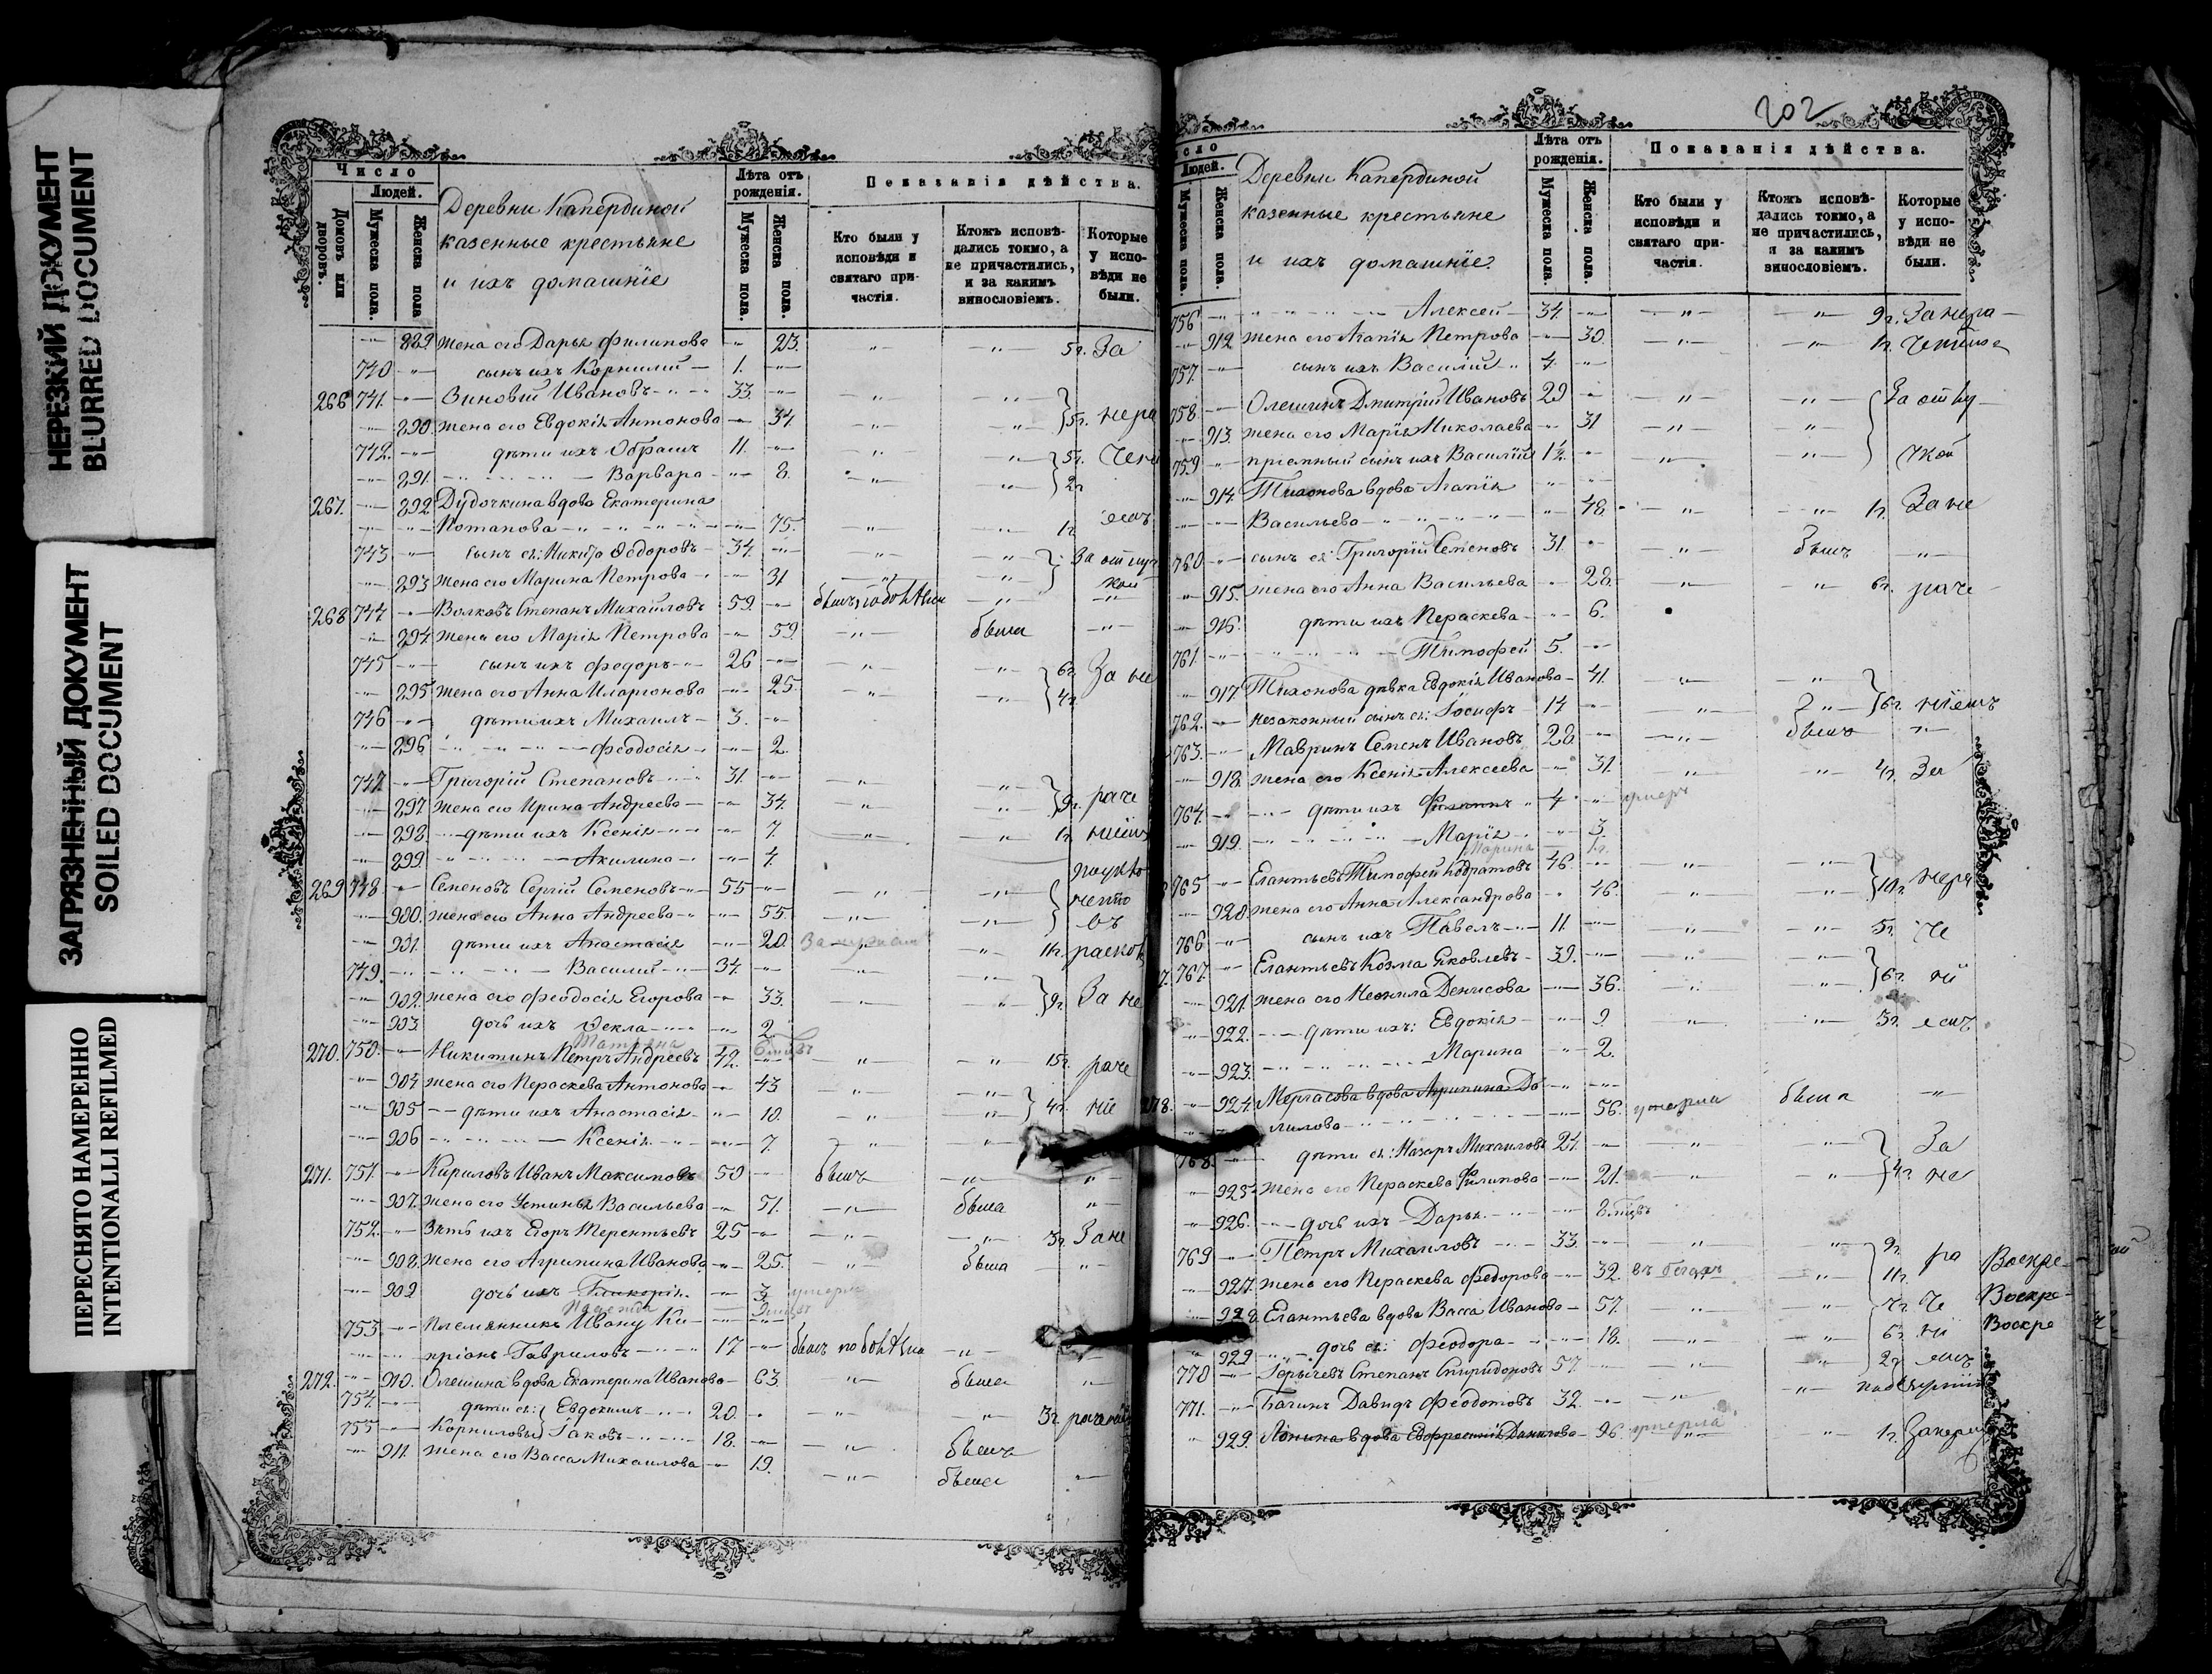 НЕРЕЗКИЙ ДОКУМЕНТ
BLURRED DOCUMENT
ЗАГРЯЗНЕННЫЙ ДОКУМЕНТ
SOILED DOCUMENT
ПЕРЕСНЯТО НАМЕРЕННО
INTENTIONALLI REFILMED
Число
Людей.
Домовъ или дворовъ.
Мужеска пола.
Женска пола
Деревни Капердиной
казенные крестьяне
и ихъ домашніе
Лѣта отъ рожденія.
Мужеска пола.
Женска пола.
Показанія дѣйства.
Кто были у исповѣди и святаго причастія.
Ктожъ исповѣдались токмо, а не причастились, и за какимъ винословіемъ.
Которые у исповѣди не были.
889 жена его Дарья Филипова 23. 5г. За
740 сынъ ихъ Корнилий 1.
266 741. Зиновій Ивановъ 33.
890. жена его Евдокія Антонова 34 5г. нера
742. дѣти ихъ Обрамъ 11. 5г.
891. Варвара 8. 2г
267. 892 Дудочкина вдова Екатерина
Потапова 75. 1г
743 сынъ ея: Никита Ѳедоровъ 34. За отлуч
893 жена его Марина Петрова 31 кой
268 744 Волковъ Степанъ Михайловъ 59.
894. жена его Марія Петрова 59. была
745 сынъ ихъ Федоръ 26 6г. За не
895. жена его Анна Иларионова 25. 4г.
746 дѣти ихъ Михаилъ 3.
896 Феодосія 2.
747. Григорій Степановъ 31.
897. жена его Ирина Андреева 34. 9г. раче
898. дѣти ихъ Ксенія 7. 1г.
899 Акилина 4.
269 748 Семеновъ Сергій Семеновъ 55
900. жена его Анна Андреева 55.
901. дѣти ихъ Анастасія 20. 1г. раскол
749. Василий 34.
902. жена его Феодосія Егорова 33. 9г. За не
903 дочь ихъ Ѳекла 2
270. 750. Никитинъ Петръ Андреевъ 42. 15г. раче
904 жена его Пераскева Антонова 43
905 дѣти ихъ Анастасія 10. 4г. ніе
906 Ксенія 7.
271. 751. Кириловъ Иванъ Максимовъ 50 былъ
907. жена его Устинья Васильева 51. была
752. Зять ихъ Егоръ Терентьевъ 25 3г. Зане
908. жена его Агрипина Иванова 25. была
909 дочь ихъ Гликерія 3 умерла
753 племянникъ Ивану Ки
пріянъ Гавриловъ 17
272. 910. Олешина вдова Екатерина Иванова 63. была
754. дѣти ея: Евдокимъ 20. 3г.
755 Корниловы Іаковъ 18. былъ
911. жена его Васса Михаилова 19. была
202
сло
Людей.
Мужеска пола.
Женска пола.
Деревни Капердиной
казенные крестьяне
и ихъ домашніе.
Лѣта отъ рожденія.
Мужеска пола
Женска пола.
Показанія дѣйства.
Кто были у исповѣди и святаго причастія.
Ктожъ исповѣдались токмо, а не причастились, и за какимъ винословіемъ.
Которые у исповѣди не были.
756 Алексей 34. 9г. За нера
912 жена его Агапія Петрова 30. 1г.
757. сынъ ихъ Василій 4.
758 Олешинъ Дмитрій Ивановъ 29 За отлу
913. жена его Марія Николаева 31
759 пріемный сынъ ихъ Василій 14. чкой
914. Тихонова вдова Агапія
Васильева 48. 1г. За не
760 сынъ ея: Григорій Семеновъ 31. былъ
915. жена его Анна Васильева 28. 6г. раче
916. дѣти ихъ Пераскева 6.
761. Тимофей 5.
917. Тихонова дѣвка Евдокія Иванова 41.
762. незаконный сынъ ея: Іосифъ 14 6г. ніемъ
763. Мавринъ Семенъ Ивановъ 28 былъ
918. жена его Ксенія Алексеева 31. 4г. За
764. дѣти ихъ Филиппъ 4 умеръ
919. Марія 3.
Марина
765 Елантьевъ Тимофей Кодратовъ 46.
920. жена его Анна Александрова 46. нера
766 сынъ ихъ Павелъ 11. 5г. че
767. Елантьевъ Козма Яковлевъ 39.
921. жена его Неонила Денисова 36. 6г. ні
922. дѣти ихъ: Евдокія 9. 3г. емъ
923. Марина 2.
278. 924. Мергасова вдова Агрипина Да
лилова 56. умерла была
768. дѣти ея: Назаръ Михаиловъ 24. За
925. жена его Пераскева Филипова 21. 4г. не
926. дочь ихъ Дарья
769 Петръ Михаиловъ 33. 9г. ра Воскре
927. жена его Пераскева Федорова 32. въ бегахъ 11г.
928 Елантьева вдова Васса Иванова 57. 7г. че Воскре
929 дочь ея: Феодора 18. 6г. ні Воскре
770 Горычевъ Степанъ Спиридоновъ 57. 2г емъ
771. Багинъ Давидъ Феодотовъ 32.
929. Лонина вдова Евфросинія Данилова 96. умерла 1г.